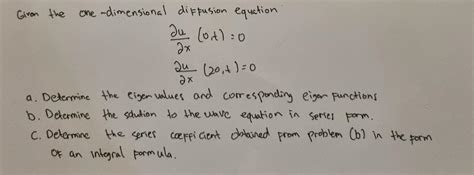 Given the one-dimensional diffusion equation
∂u/∂x (0,t) = 0
∂u/∂x (20,t) = 0
a. Determine the eigen values and corresponding eigen functions
b. Determine the solution to the wave equation in series form.
c. Determine the series coefficient obtained from problem (b) in the form
of an integral formula.